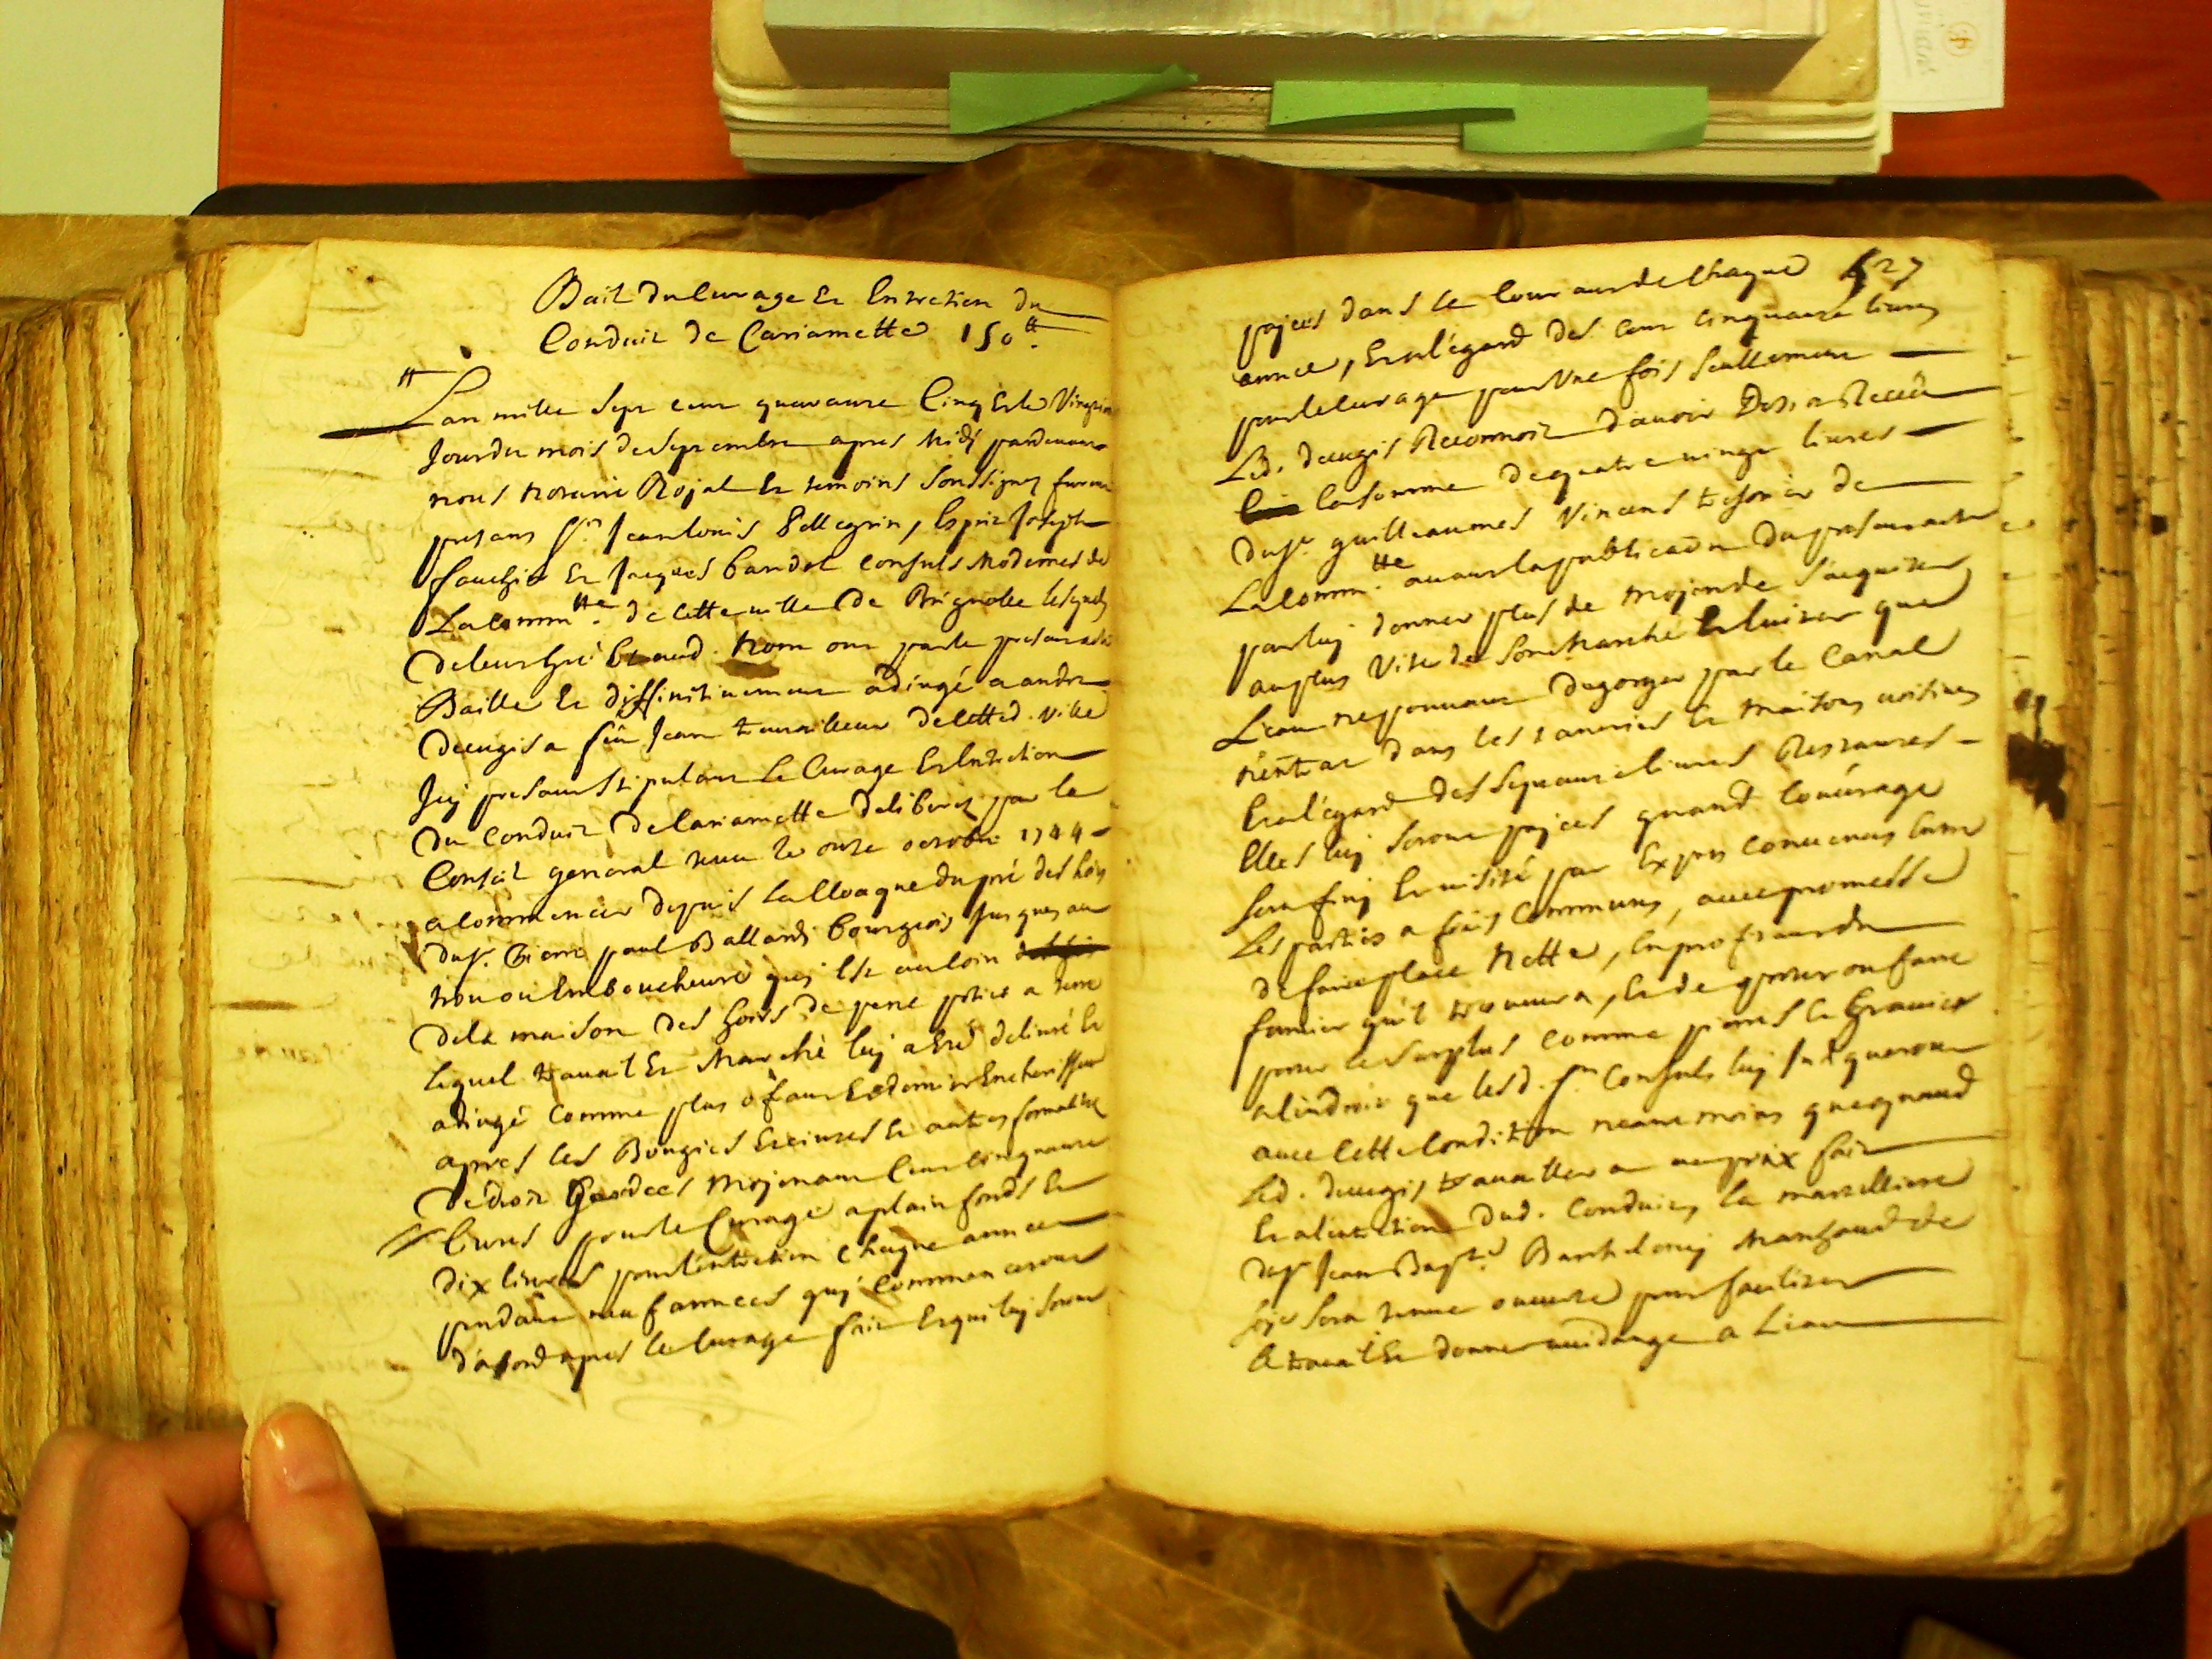 Bail du Curage Et Entretien du
Conduit de Cariamette 150tt.
Lan mille Sept cent quarante Cinq Et le Vingt
Jour du mois de Septembre apres Midy pardevant
nous Notaire Royal Et temoins Soussignez furent
presans Sr. Jean louis Pellegrin, Esprit Joseph
fauchier Et Jacques bandol Consuls Modernes de
La Commtté. de Cette ville de Brignolle lesquels
de leur gré Et aud. Nom ont par le present acte
Baillé Et diffinitivement adiugé a andré
deeugis a feu Jean travailleur de Cetted. ville
Icy present Stipulant Le Curage Et Entretien
du Conduit de Cariamette deliberez par le
Conseil general tenu le onze octobre 1744
a Commencer depuis La Cloaque du pré des hoirs
du Sr. Pierre paul Ballardy bourgeois Jusques au
trou ou Emboucheure quy Est au Coin
de la maison des hoirs de pere potier a terre
lequel travail Et Marché luy a Eté delivré Et
adiugé Comme plus ofrant Et dernier Encherisseur
apres les Bougies Eteintes Et autres formalités
de droit Gardees Moyenant Cent cinquante
livres pour le Curage a plain fonds Et
dix livres pour l'entretien Chaque année
pendant neuf années quy Commenceront
d'abord apres le Curage fait Et qui luy Seront
527
payees dans le Courant de Chaque
année, Et a l'egard des Cent Cinquante livres
pour le Curage pour Une fois Seullement
Led. deeugis Reconnoit d'avoir Desia Receu
la somme de quatre vingt livres
du Sr. guilleaumes Vincens tresorier de
La Commtté. avant la publication du present acte
pour luy donner plus de moyen de S'aquiter
au plus Vite de Son Marché Et Eviter que
L'eau ne pouvant degorger par le Canal
n'entrat dans les tanneries Et Maisons voisines
Et a l'egard des Septante livres Restantes
Elles luy Seront payees quand L'ouvrage
Sera finy Et visité par Expers Convenus Entre
Les parties a frais Communs, avec promesse
de faire place Nette, En profitant du
fumier qu'il trouvera, Et de porter ou faire
porter le Surplus Comme pierres Et Gravier
a l'endroit que lesd. Srs Consuls luy Indiqueront
avec Cette Condition neantmoins que quand
Led. deeugis travaillera au prix fait
Et a l'entretien dud. Conduit, la marteliere
du Sr Jean Bapte. Barthelemy Marchand de
Soye Sera tenue ouverte pour faciliter
le travail Et donner vuidange a L'eau